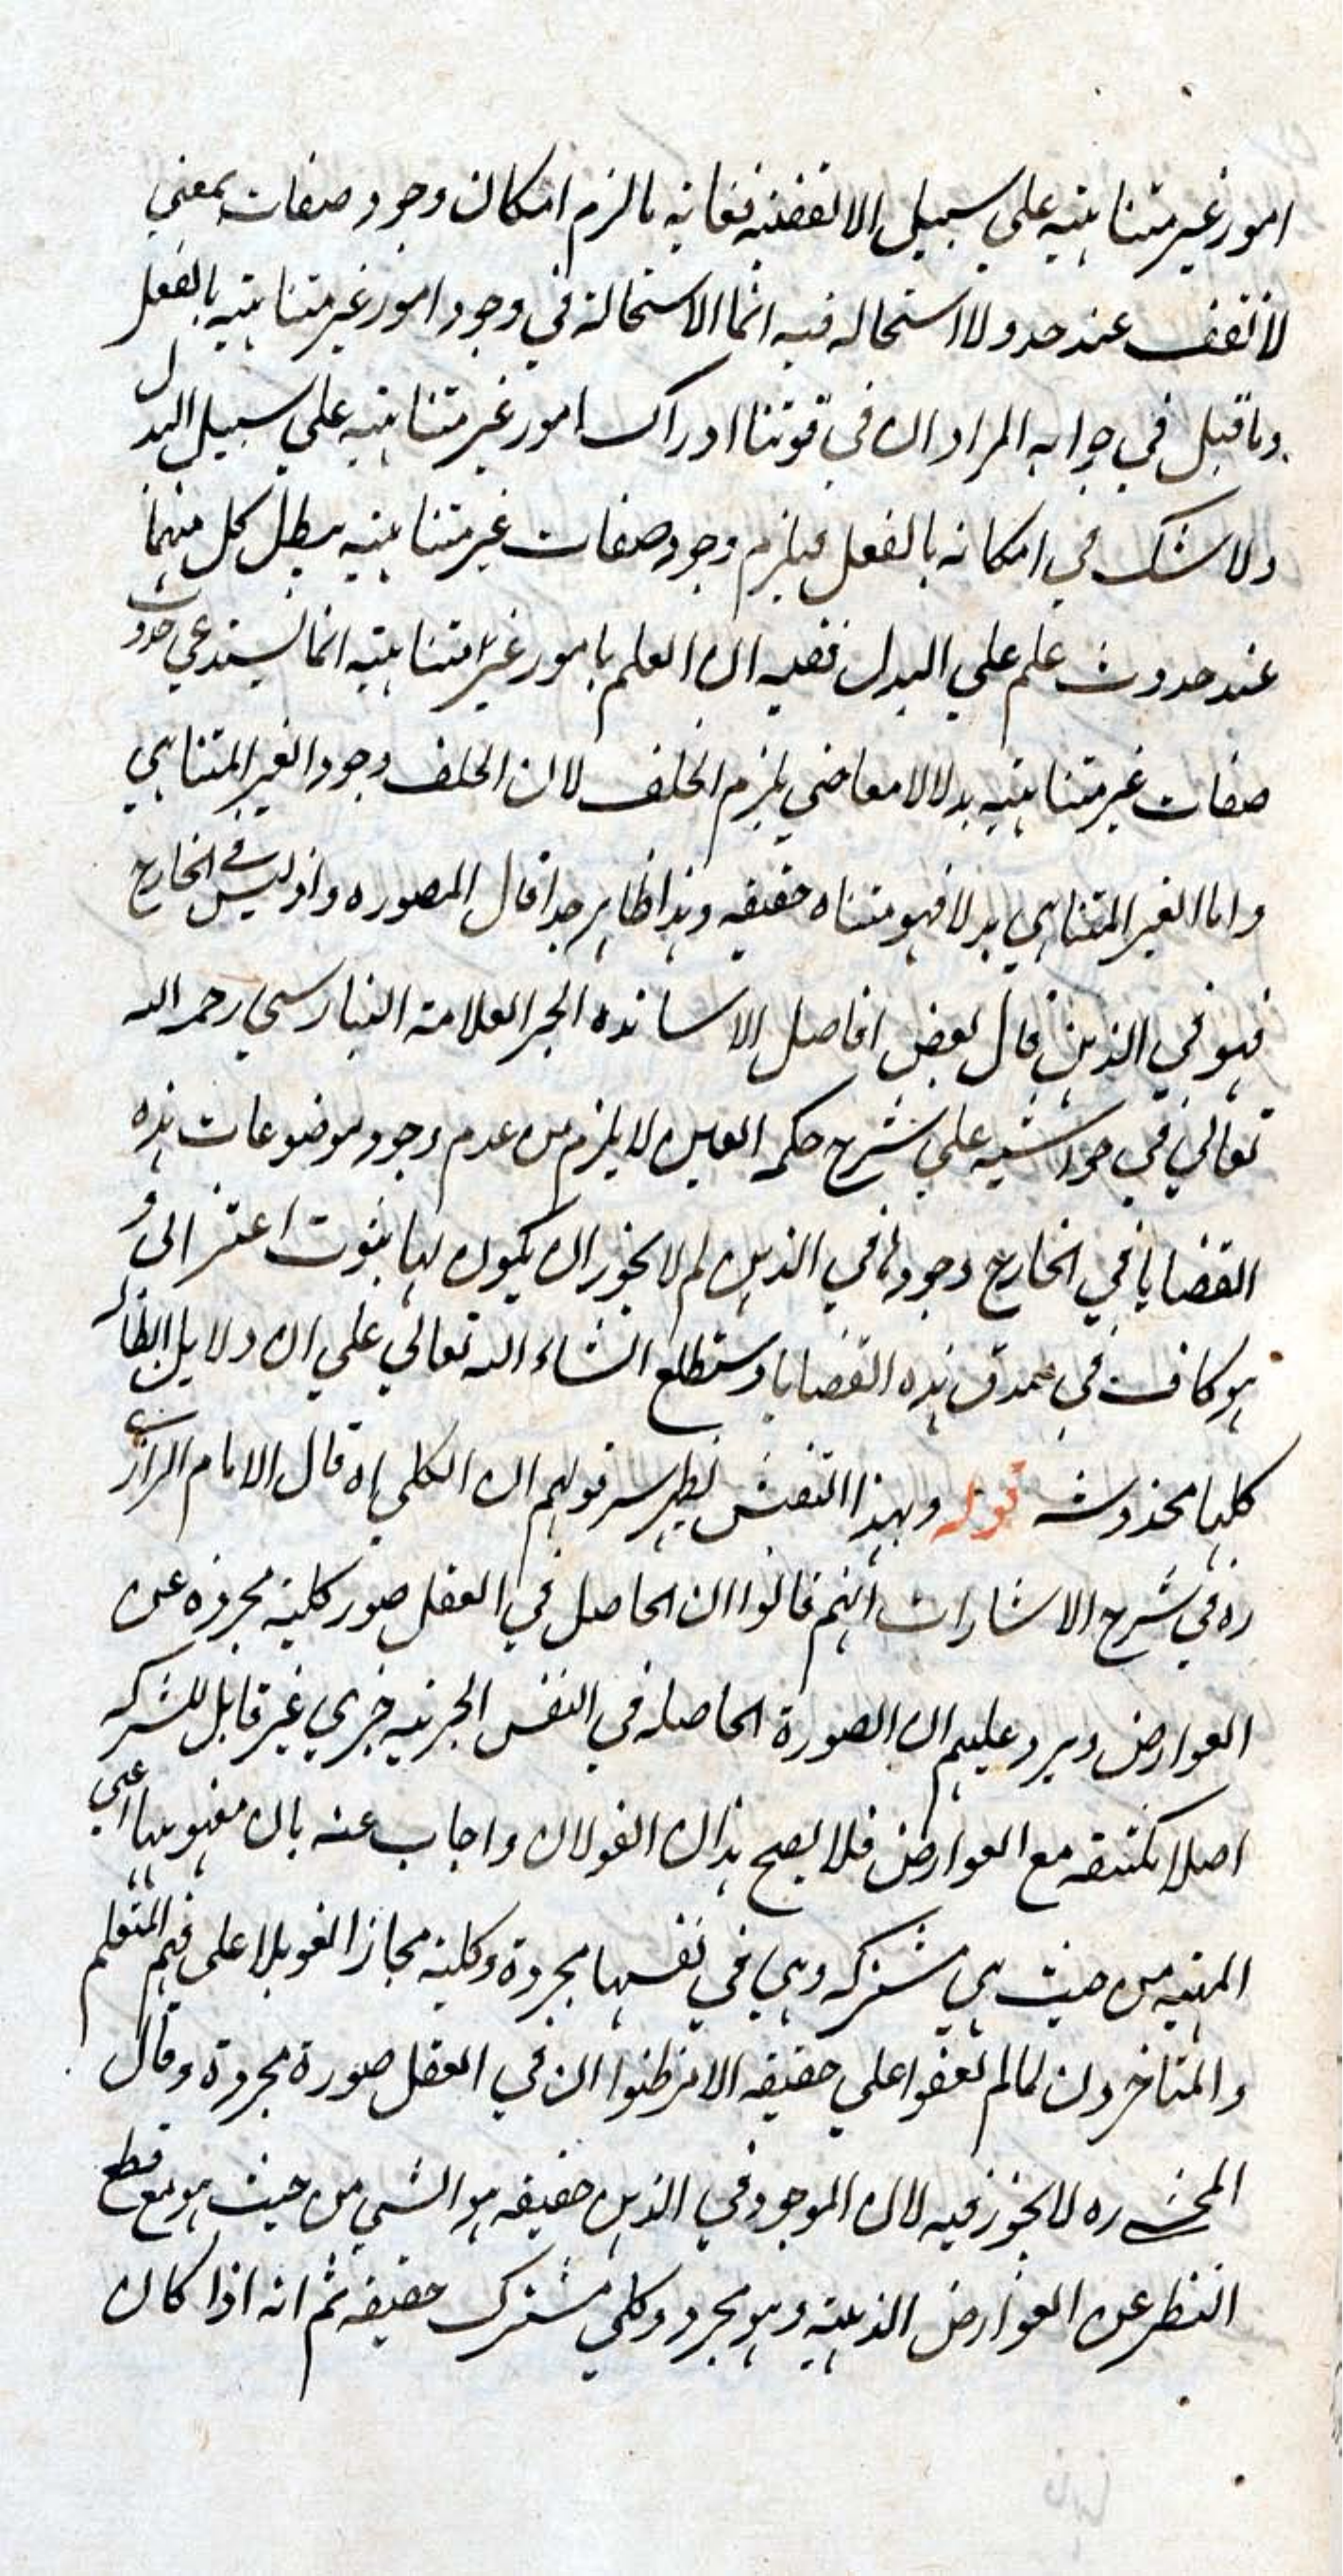 امور غير متناهيه علي سبيل اللاتقفيه فغايه مالزم امكان وجود صفات بمعني
لا تقف عند حد ولا استحاله فيه انما الاستحالة في وجود امور غير متناهيه بالفعل
وما قيل في جوابه المراد ان في قوتنا ادراك امور غير متناهيه علي سبيل البدل
ولا شك في امكانه بالفعل فيلزم وجود صفات غير متناهيه يبطل كل منهما
عند حدوث علم علي البدل ففيه ان العلم بامور غير متناهيه انما يستدعي حدوث
صفات غير متناهيه بدلا لا معا ضي يلزم الخلف لان الخلف وجود الغير المتناهي
واما الغير المتناهي بدلا فهو متناه حقيقه وهذا ظاهر جدا قال المصوره واذ ليس في الخارج
فهو في الذهن قال بعض افاضل الاساتذه الحبر العلامة البنارسي رحمه الله
تعالي في حواشيه علي شرح حكمه العين لا يلزم من عدم وجود موضوعات هذه
القضايا في الخارج وجودها في الذهن لم لا يجوز ان يكون لها ثبوت اعتزالي و
هو كاف في صدق هذه القضايا وستطلع انشاء الله تعالي علي ان دلايل ابطاله
كلها مخدوشه قوله وبهذا التفتيش يظهر سر قولهم ان الكلي اه قال الامام الرازي
ره في شرح الاشارات انهم قالوا ان الحاصل في العقل صور كلية مجرده عن
العوارض ويرد عليهم ان الصورة الحاصله في النفس الجزئيه جزئي غير قابل للشركه
اصلا مكتنفه مع العوارض فلا يصح هذان القولان واجاب عنه بان مفهومها اعني
المهيه من حيث هي مشتركه وهي في نفسها مجردة وكلية مجازا تعويلا علي فهم المتعلم
والمتاخرون لما لم يقفوا علي حقيقه الامر ظنوا ان في العقل صورة مجردة وقال
المحشي ره لا تجوز فيه لان الموجود في الذهن حقيقه هو الشي من حيث هو مع قطع
النظر عن العوارض الذهنيه وهو مجرد وكلي مشترك حقيقه ثم انه اذا كان